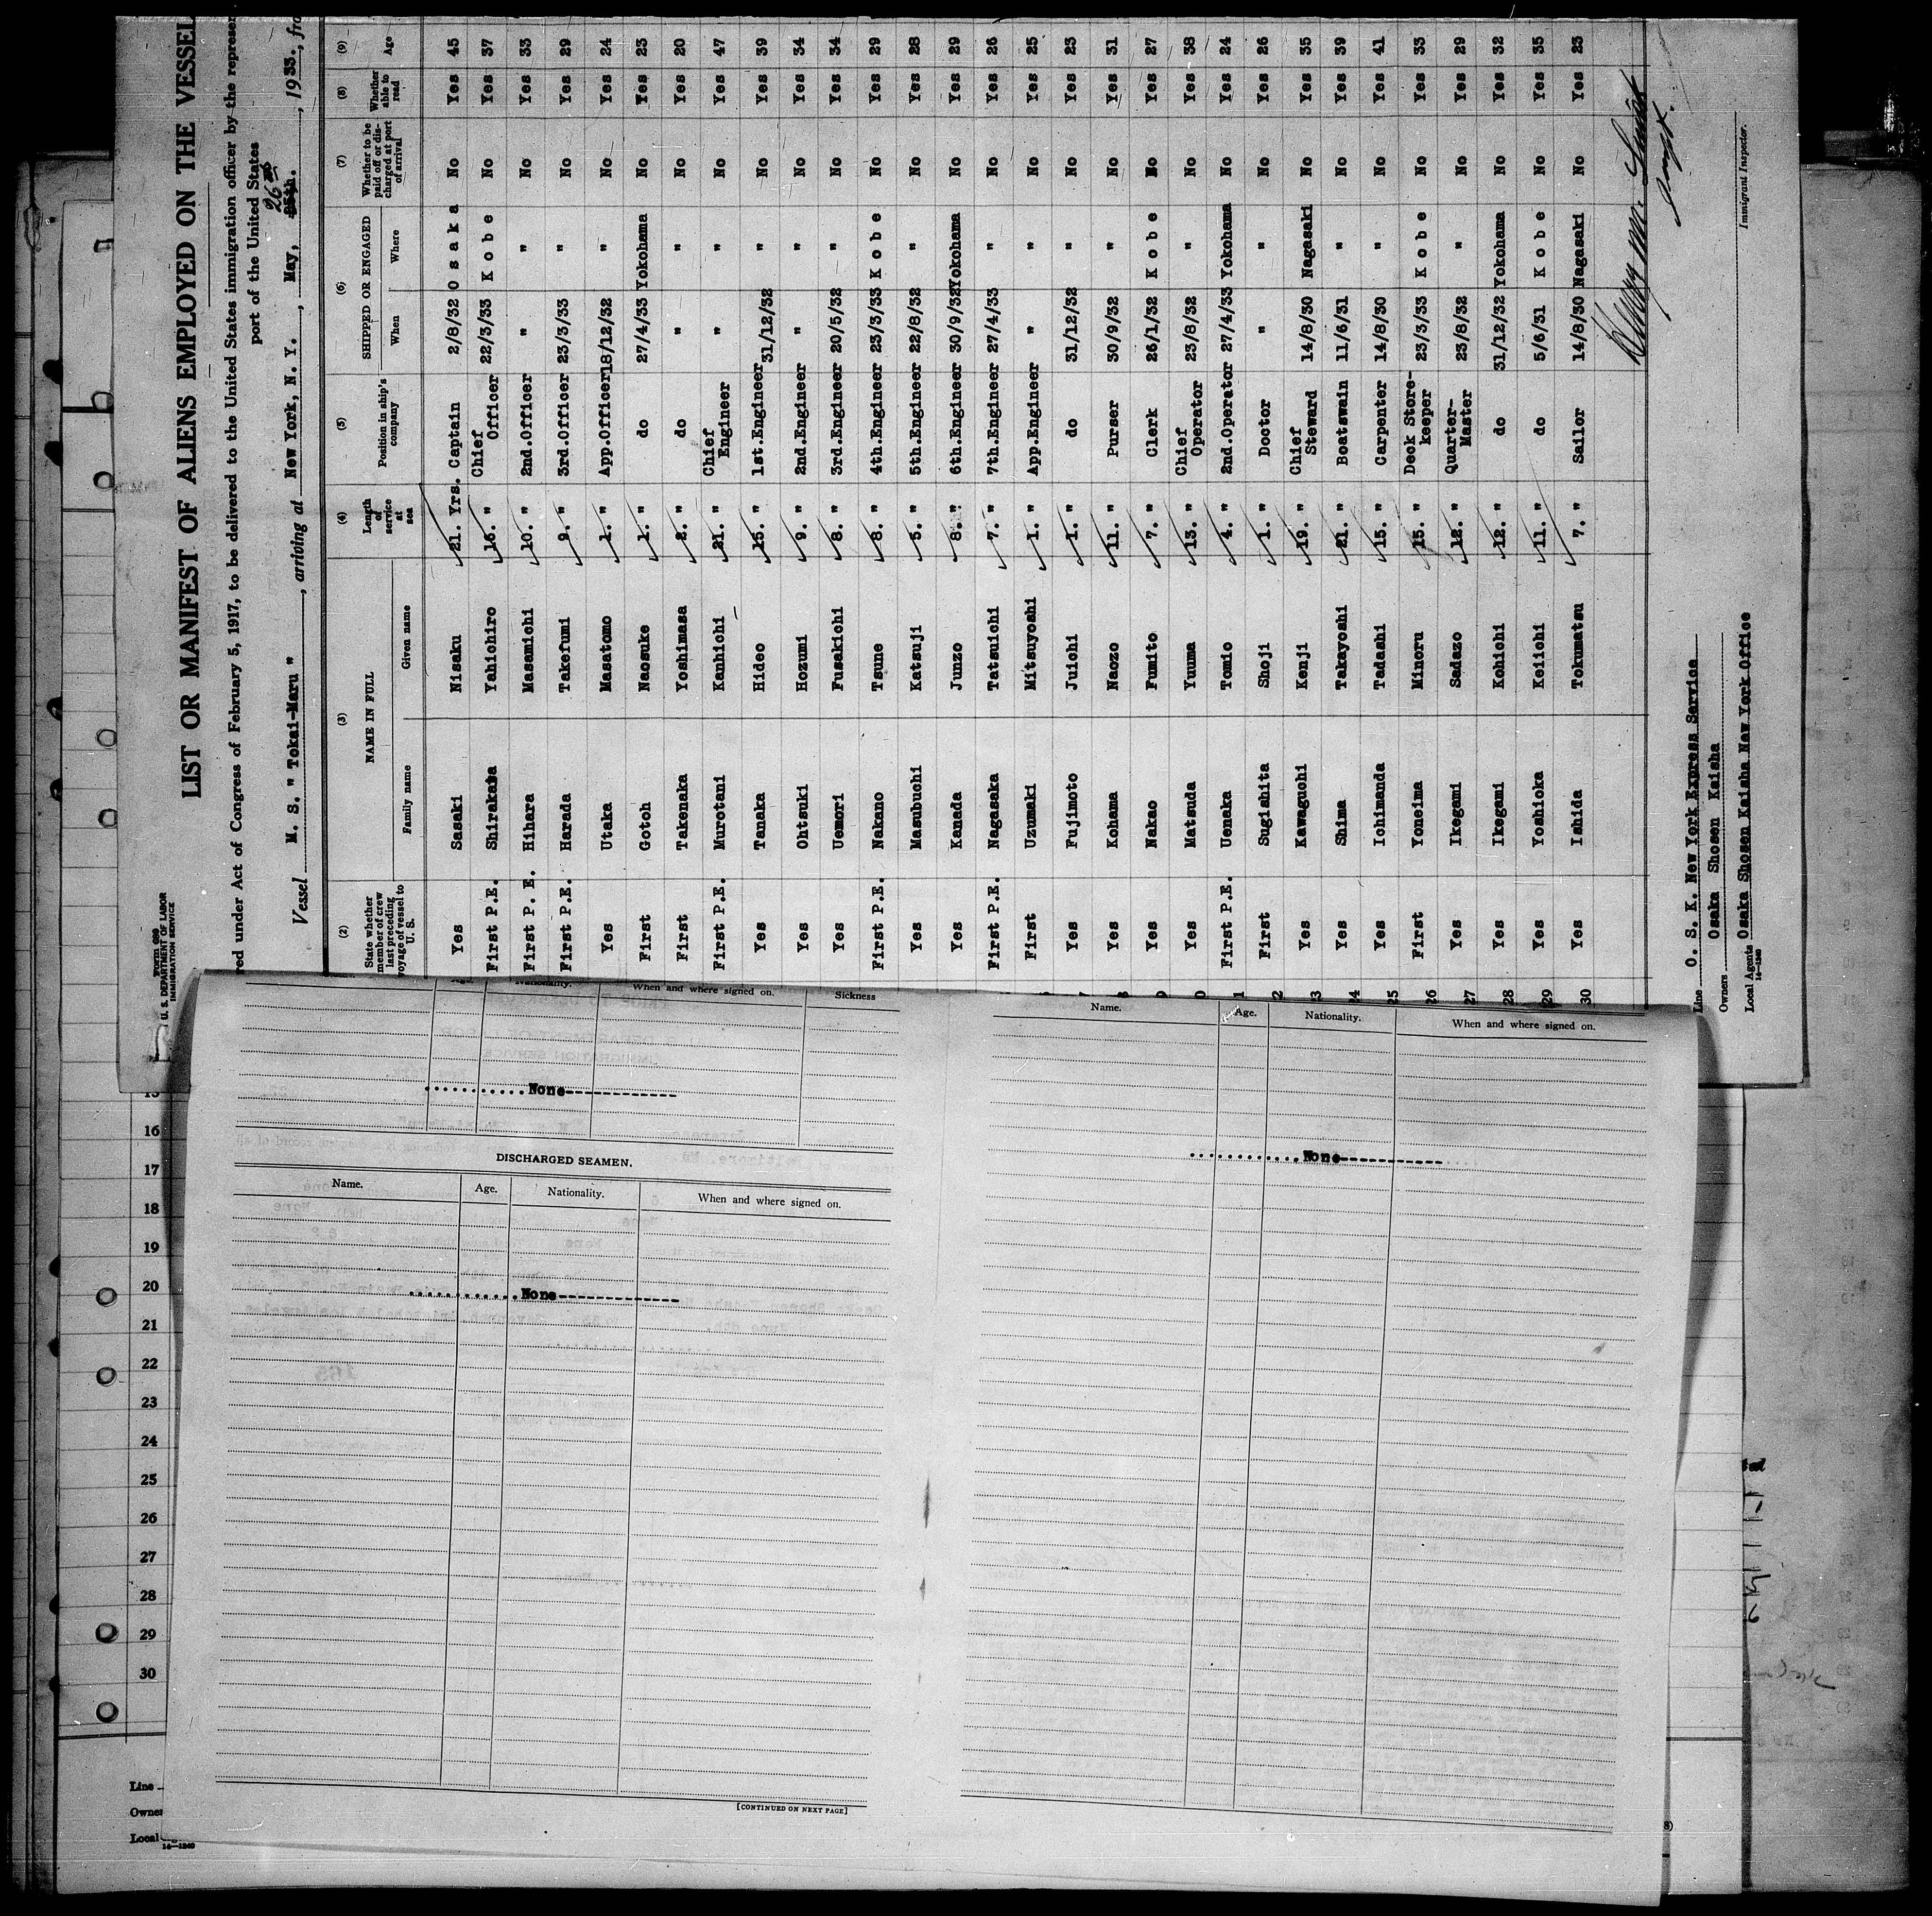 Form 680
U. S. DEPARTMENT OF LABOR
IMMIGRATION SERVICE
LIST OR MANIFEST OF ALIENS EMPLOYED ON THE VESSEL
red under Act of Congress of February 5, 1917, to be delivered to the United States immigration officer by the represen
port of the United States
Vessel M. S. " Tokai-Maru ", arriving at New York, N. Y., May, 26th 25th., 1933., fro
(2) (3) (4) (5) (6) (7) (8) (9)
State whether member of crew last preceding voyage of vessel to U. S. NAME IN FULL Family name Given name Length of service at sea Position in ship's company SHIPPED OR ENGAGED When Where Whether to be paid off or discharged at port of arrival Whether able to read Age
Yes Sasaki Nisaku 21. Yrs. Captain 2/8/32 O s a k a No Yes 45
First P.E. Shirakata Yahichiro 16. " Chief Officer 22/3/33 K o b e No Yes 37
First P. E. Hihara Masamichi 10. " 2nd.Officer " " No Yes 33
First P.E. Harada Takefumi 9. " 3rd.Officer 23/3/33 " No Yes 29
Yes Utaka Masatomo 1. " App.Officer 18/12/32 " No Yes 24
First Gotoh Naosuke 1. " do 27/4/33 Yokohama No Yes 23
First Takenaka Yoshimasa 2. " do " " No Yes 20
First P.E. Murotani Kahhichi 21. " Chief Engineer " " No Yes 47
Yes Tanaka Hideo 15. " 1st.Engineer 31/12/32 " No Yes 39
Yes Ohtsuki Hozumi 9. " 2nd.Engineer " " No Yes 34
Yes Uemori Fusakichi 8. " 3rd.Engineer 20/5/32 " No Yes 34
First P.E. Nakano Tsune 8. " 4th.Engineer 23/3/33 K o b e No Yes 29
Yes Masubuchi Katsuji 5. " 5th.Engineer 22/8/32 " No Yes 28
Yes Kanada Junzo 8. " 6th.Engineer 30/9/32 Yokohama No Yes 29
First P.E. Nagasaka Tatsuichi 7. " 7th.Engineer 27/4/33 " No Yes 26
First Uzumaki Mitsuyoshi 1. " App.Engineer " " No Yes 25
Yes Fujimoto Juichi 1. " do 31/12/32 " No Yes 23
Yes Kohama Naozo 11. " Purser 30/9/32 " No Yes 31
Yes Nakao Fumito 7. " Clerk 26/1/32 K o b e No Yes 27
Yes Matsuda Yuuma 13. " Chief Operator 23/8/32 " No Yes 38
First P.E. Uenaka Tomio 4. " 2nd.Operator 27/4/33 Yokohama No Yes 24
First Sugishita Shoji 1. " Doctor " " No Yes 26
Yes Kawaguchi Kenji 19. " Chief Steward 14/8/30 Nagasaki No Yes 35
Yes Shima Takayoshi 21. " Boatswain 11/6/31 " No Yes 39
Yes Ichimanda Tadashi 15. " Carpenter 14/8/30 " No Yes 41
First Yoneima Minoru 15. " Deck Store-keeper 23/3/33 K o b e No Yes 33
Yes Ikegami Sadazo 12. " Quarter-Master 23/8/32 " No Yes 29
Yes Ikegami Kohichi 12. " do 31/12/32 Yokohama No Yes 32
Yes Yoshioka Keiichi 11. " do 5/6/31 K o b e No Yes 35
30 Yes Ishida Tokumatsu 7. " Sailor 14/8/30 Nagasaki No Yes 23
Line O. S. K. New York Express Service
Owners Osaka Shosen Kaisha
Local Agents Osaka Shosen Kaisha New York Office
14—1240
Immigrant Inspector.
Age. Nationality. When and where signed on. Sickness
None
DISCHARGED SEAMEN.
Name. Age. Nationality. When and where signed on.
None
[CONTINUED ON NEXT PAGE]
Name. Age. Nationality. When and where signed on.
None
15
16
17
18
19
20
21
22
23
24
25
26
27
28
29
30
Line
Owner
Local
14—1240